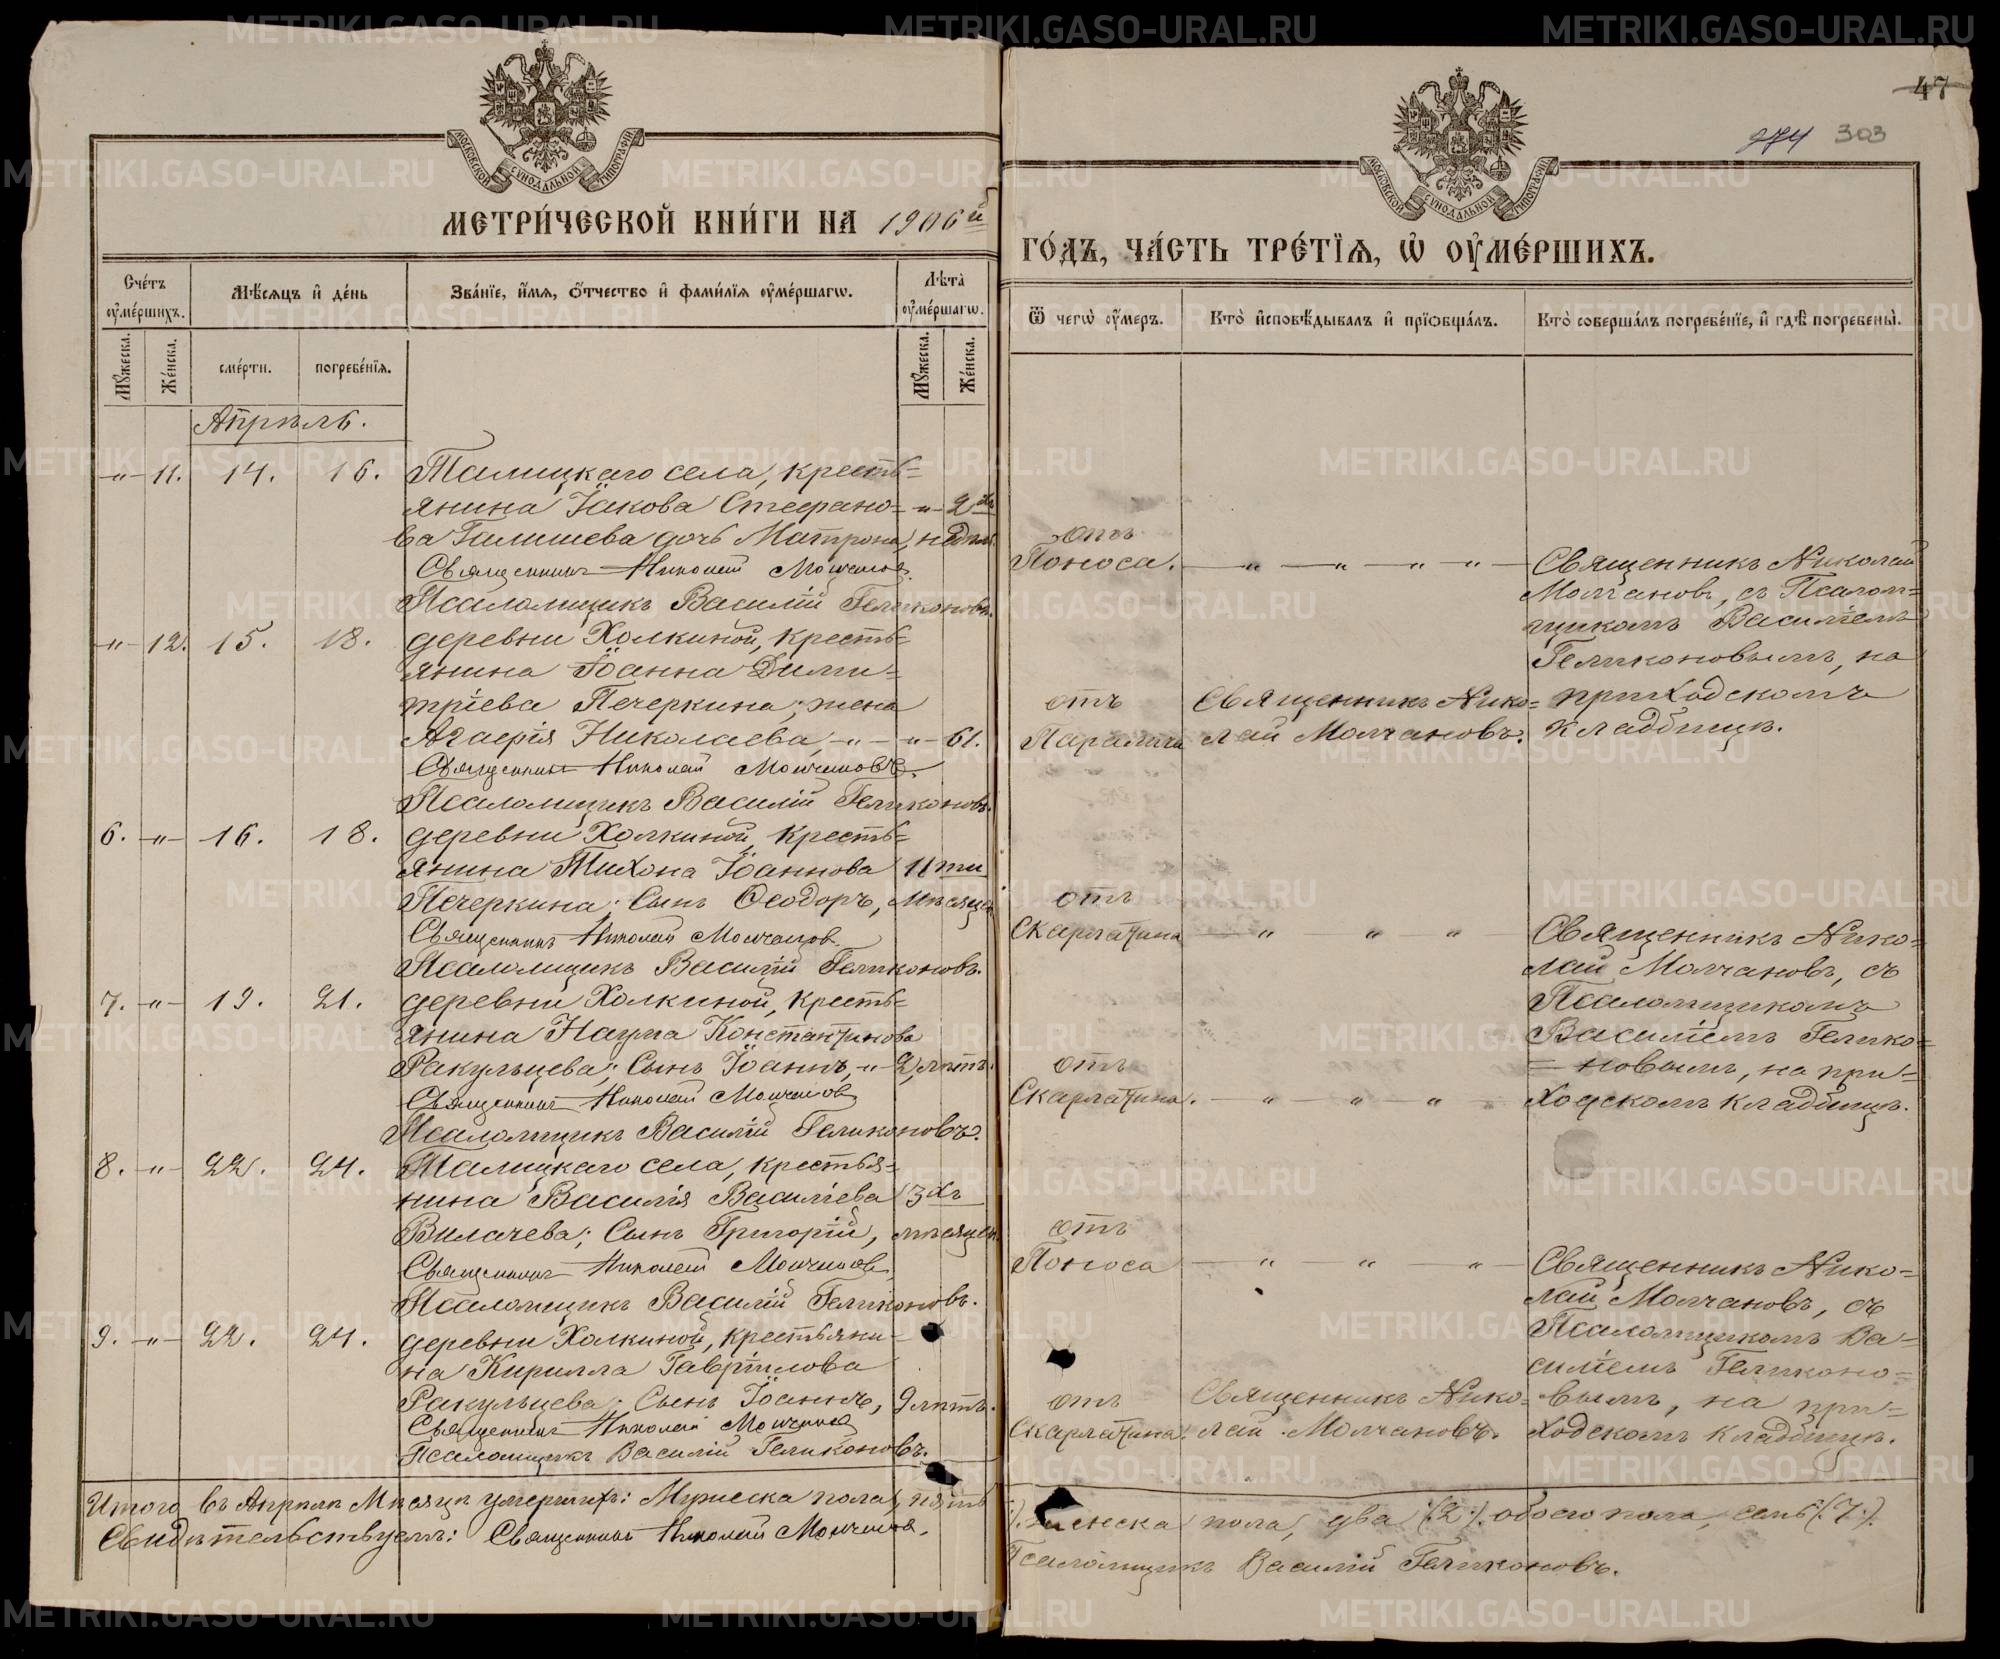 47
274 303
МОСКОВСКОЙ СѴНОДАЛЬНОЙ ТИПОГРАФІИ
МОСКОВСКОЙ СѴНОДАЛЬНОЙ ТИПОГРАФІИ
МЕТРИ́ЧЕСКОЙ КНИ́ГИ НА 1906й
ГО́ДЪ, ЧА́СТЬ ТРЕ́ТЇѦ, Ѡ҆ ОУ҆МЕ́РШИХЪ.
Сче́тъ оу҆ме́ршихъ.
Мꙋжеска.
Же́нска.
Мѣ́сѧцъ и҆ де́нь
сме́рти.
погребе́нїѧ.
Зва́нїе, и҆́мѧ, ѻ҆́тчество и҆ фами́лїѧ оу҆ме́ршагѡ.
Лѣ́та оу҆ме́ршагѡ.
Мꙋжеска.
Же́нска.
Ѿ чегѡ̀ оу҆́меръ.
Кто̀ и҆сповѣ́дывалъ и҆ прїѡбща́лъ.
Кто̀ соверша́лъ погребе́нїе, и҆ гдѣ̀ погребены̀.
Апрѣль.
-„- 11. 14. 16. Талицкаго села, кресть=
янина Іакова Стефано= -„- 2хъ
ва Галишева дочь Матрона, недѣль
Священникъ Николай Молчанов.
Псаломщикъ Василій Геликоновъ.
отъ
Поноса. — „ — „ — „ „ — Священникъ Николай
Молчановъ, съ Псалом=
щикомъ Василіемъ
Геликоновымъ, на
приходскомъ
кладбищѣ.
-„- 12. 15. 18. деревни Холкиной, кресть=
янина Іоанна Дими=
тріева Печеркина; жена
Агафія Николаева, -„- -„- 61.
Священникъ Николай Молчановъ.
Псаломщикъ Василій Геликоновъ.
отъ Священникъ Нико=
Параличи лай Молчановъ.
6. -„- 16. 18. деревни Холкиной, кресть=
янина Тихона Іоаннова 11ти
Печеркина; Сынъ Ѳеодоръ, мѣсяцев
Священникъ Николай Молчанов.
Псаломщикъ Василій Геликоновъ.
отъ
Скарлатина — „ „ „ — Священникъ Нико=
лай Молчановъ, съ
Псаломщикомъ
Василіемъ Гелико=
= новымъ, на при=
ходскомъ кладбищѣ.
7. -„- 19. 21. деревни Холкиной, кресть=
янина Наума Константинова
Ракульцева; Сынъ Іоаннъ, -„ 2 лѣтъ.
Священникъ Николай Молчанов
Псаломщикъ Василій Геликоновъ.
отъ
Скарлатина. — „ — „ — „ —
8. -„- 22. 24. Талицкаго села, крестья=
нина Василія Василіева 3хъ
Вилачева; Сынъ Григорій, мѣсяцев
Священникъ Николай Молчанов
Псаломщикъ Василій Геликоновъ.
отъ
Поноса — „ — „ — „ — Священникъ Нико=
лай Молчановъ, съ
Псаломщикомъ Ва=
силіемъ Геликоно=
вымъ, на при=
ходскомъ кладбищѣ.
9. -„- 22. 24. деревни Холкиной, крестьяни=
на Кирилла Гавріилова
Ракульцева; Сынъ Іоаннъ, 9 лѣтъ.
Священникъ Николай Молчанов
Псаломщикъ Василій Геликоновъ.
отъ Священникъ Нико=
Скарлатина. лай Молчановъ.
Итого въ Апрѣлѣ Мѣсяцѣ умершихъ: Мужеска пола, пять
женска пола, два (:2:). обоего пола, семь (:7:).
Свидѣтельствуемъ: Священникъ Николай Молчанов.
Псаломщикъ Василій Геликоновъ.
METRIKI.GASO-URAL.RU